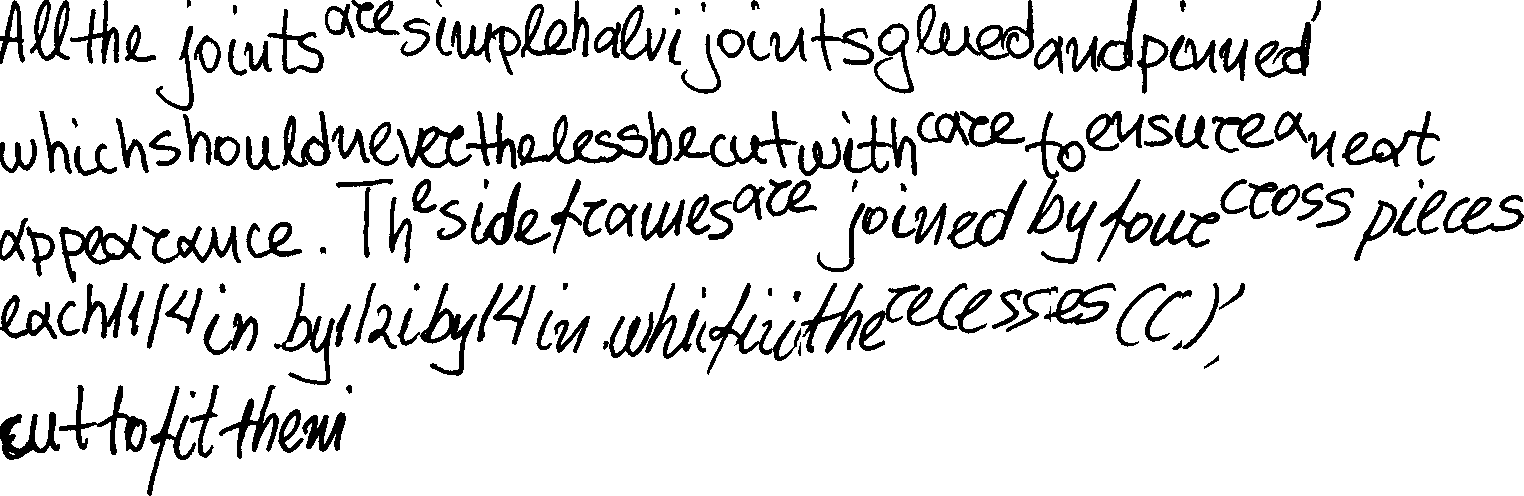 All the joints are simple halvi joints glued and pinned
which should nevertheless be cut with care to ensure a neat
appearance. The side frames are joined by four cross pieces
each 11/4 in by 1/2 i by 1/4 in . the recesses (C.),
cut to fit them